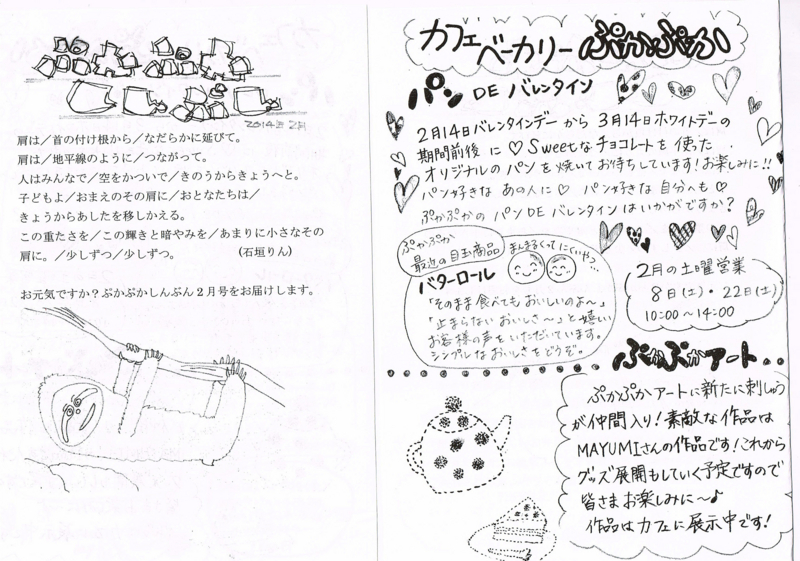 2014年2月
肩は／首の付け根から／なだらかに延びて。
肩は／地平線のように／つながって。
人はみんなで／空をかついで／きのうからきょうへと。
子どもよ／おまえのその肩に／おとなたちは／
きょうからあしたを移しかえる。
この重たさを／この輝きと暗やみを／あまりに小さなその
肩に。／少しずつ／少しずつ。　　　　　（石垣りん）
お元気ですか？ぷかぷかしんぶん２月号をお届けします。
カフェベーカリーぷかぷか
パン DE バレンタイン
2月14日バレンタインデー から 3月14日ホワイトデーの
期間前後 に ♡ Sweetな チョコレートを 使った
オリジナルの パン を 焼いて お待ちしています！お楽しみに!!
パン好きな あの人に♡ パン好きな 自分へも♡
ぷかぷかの パン DE バレンタイン はいかがですか？
ぷかぷか
最近の目玉商品
まんまるくってにくいやつ…
バターロール
「そのまま 食べても おいしいのよ〜」
「止まらない おいしさ〜」と 嬉しい
お客様の声を いただいています。
シンプルな おいしさを どうぞ。
2月の土曜営業
8日(土)・22日(土)
10:00〜14:00
ぷかぷかアート
ぷかぷかアートに新たに刺しゅう
が仲間入り！素敵な作品は
MAYUMIさんの作品です！これから
グッズ展開もしていく予定ですので
皆さまお楽しみに〜♪
作品はカフェに展示中です！